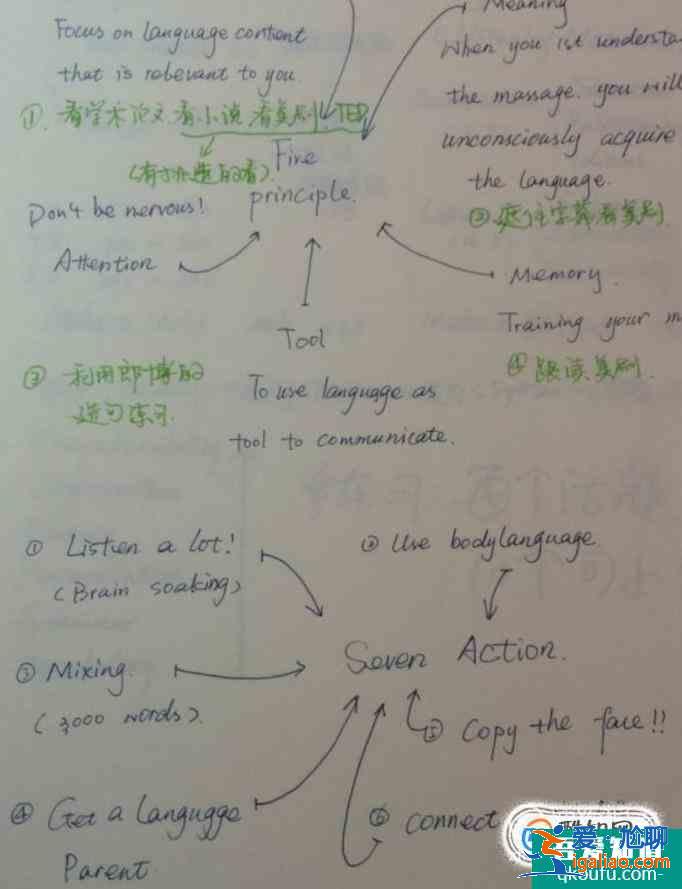 Meaning
Focus on language content
that is relevant to you.
When you ist understa
the massage. you will
unconsciously acquire
the language.
① 看学术论文.看小说.看美剧.TED
(有方法的看)
Five
principle.
Don't be nervous!
Attention
字幕看美剧
Memory.
Training your m
④ 跟读美剧.
Tool
To use language as
tool to communicate.
③ 利用郎博的
造句练习.
① Listien a lot!
(Brain soaking)
② Use bodylanguage
Seven Action.
③ Mixing.
(3,000 words).
⑤ Copy the face!!
④ Get a Langugge
Parent
⑥ connect
爱尬聊
igaliao.com
qk9ufu.com